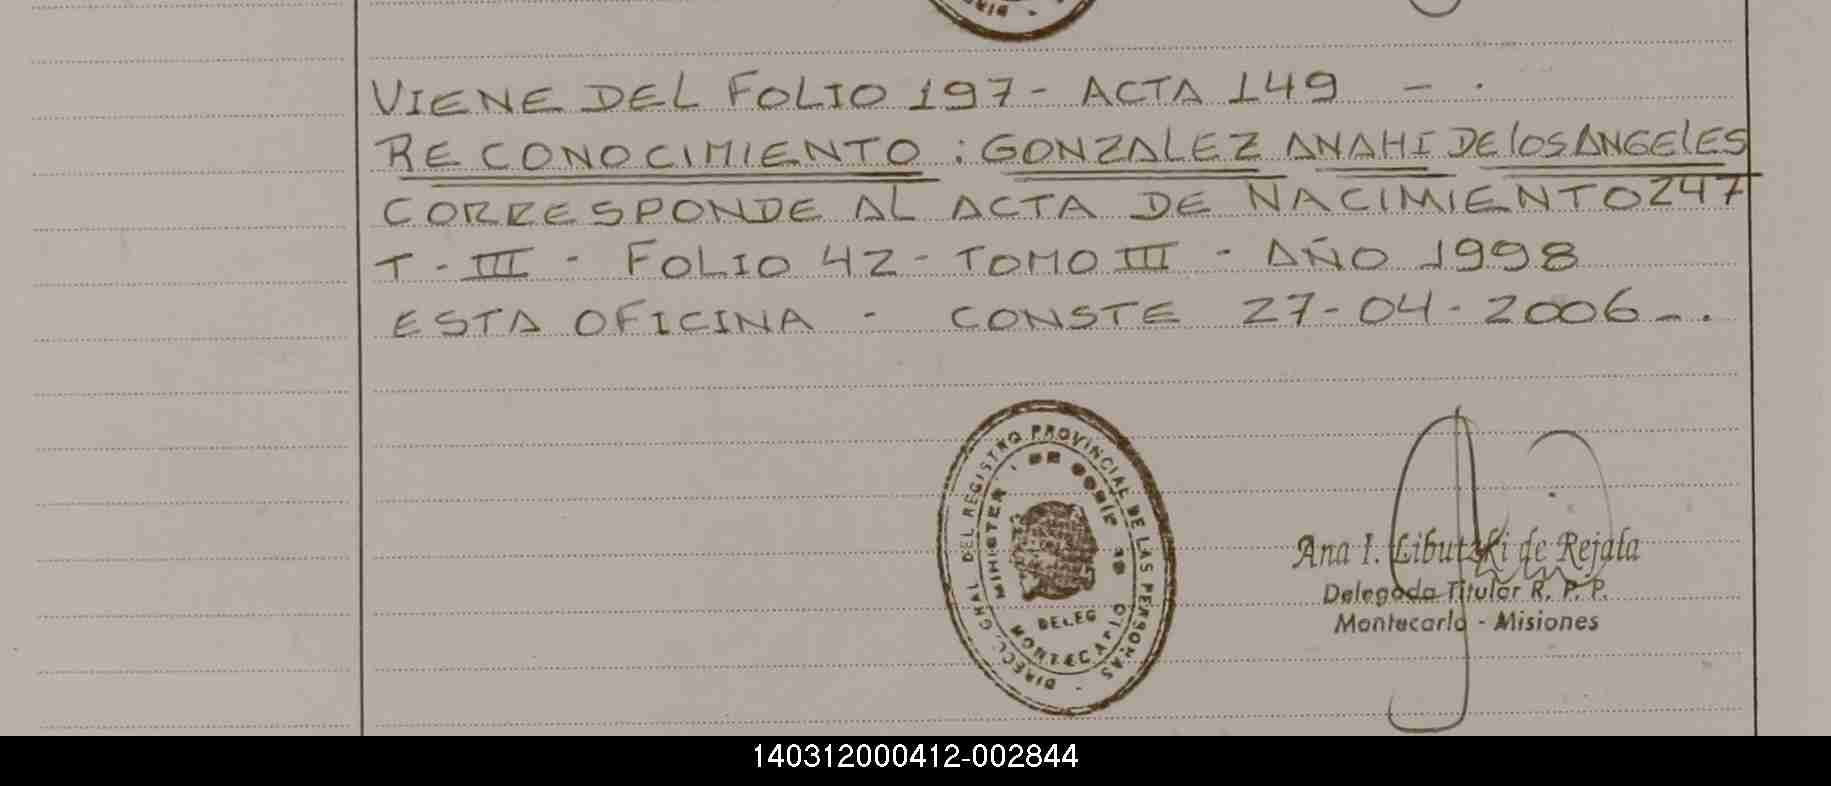 VIENE DEL FOLIO 197 - ACTA 149 - .
RECONOCIMIENTO : GONZALEZ ANAHI DE lOS ANGElES
CORRESPONDE AL ACTA DE NACIMIENTO 247
T - III - FOLIO 42 - TOMO III - AÑO 1998
ESTA OFICINA - CONSTE 27-04-2006 - .
DIRECC. GRAL DEL REGISTRO PROVINCIAL DE LAS PERSONAS -
MINISTER DE GOBIE
DELEG
MONTECARLO
Ana I. Libutzki de Rejala
Delegada Titular R. P. P.
Montecarlo - Misiones
140312000412-002844